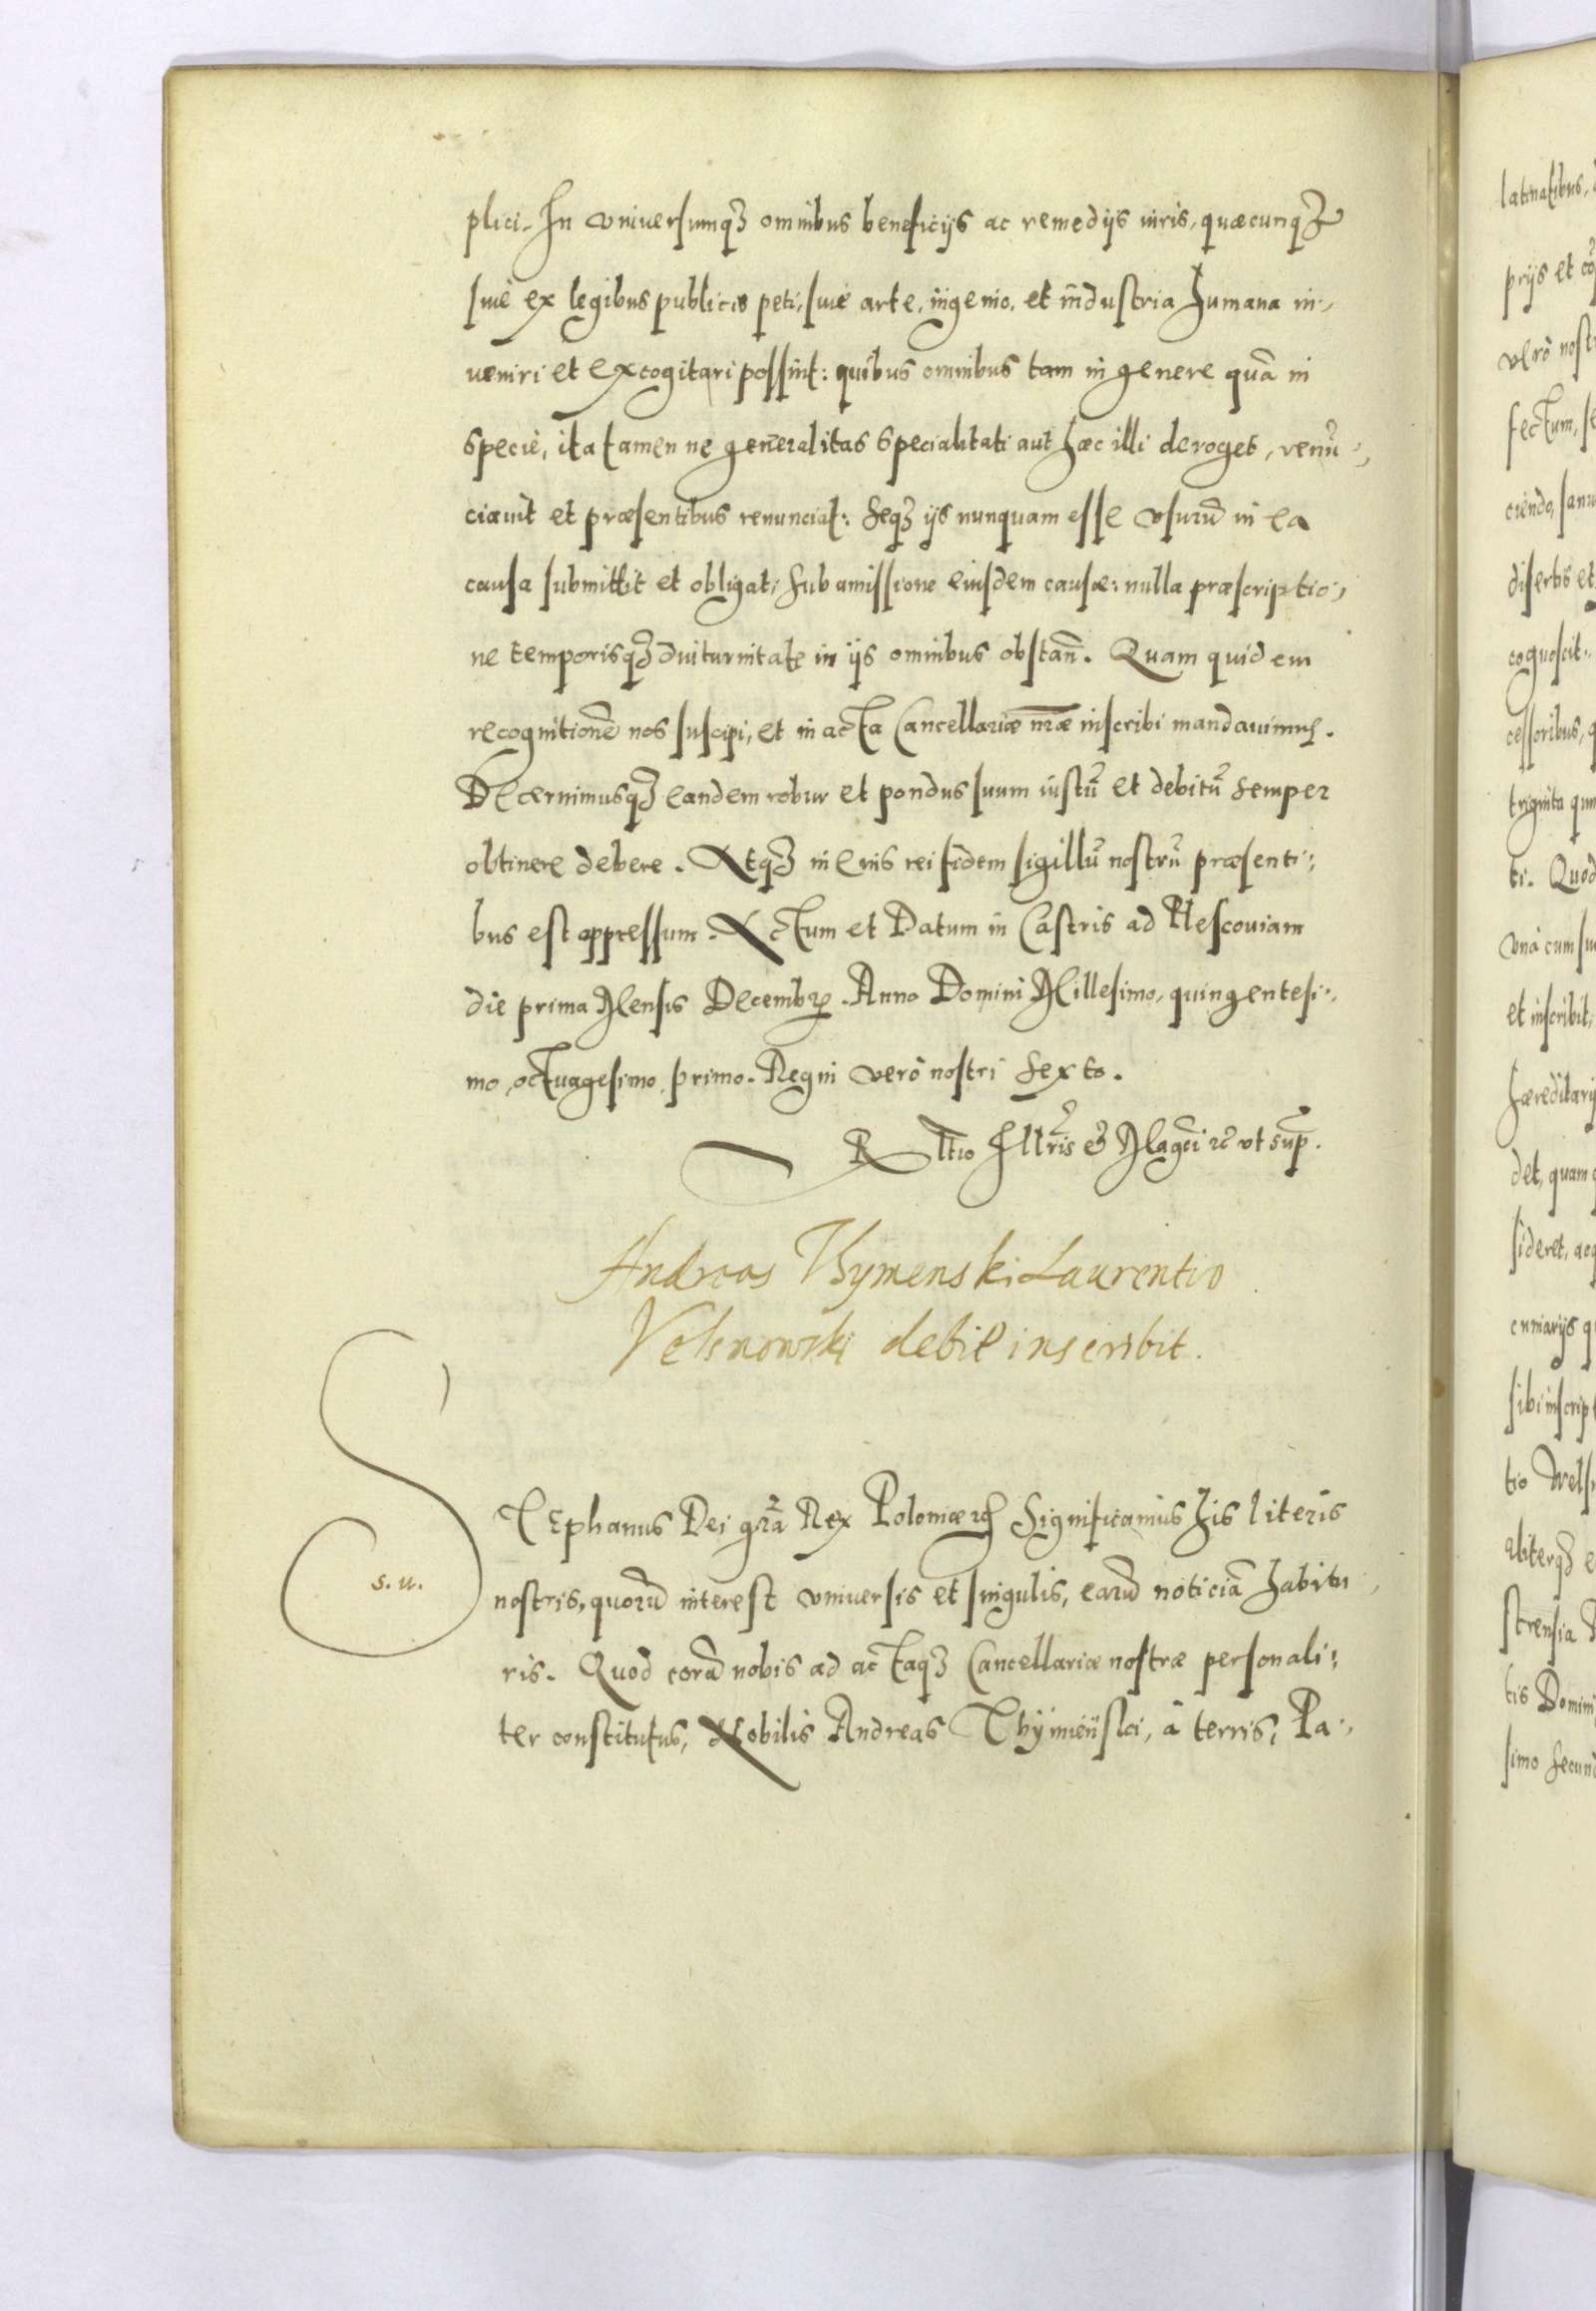 plici. In vniuersumqꝫ omnibus beneficijs ac remedijs iuris, quæcunqꝫ
siue ex legibus publicis peti, siue arte, ingenio, et industria humana in-
ueniri et excogitari possint: quibus omnibus tam in genere quā in
specie, ita tamen ne generalitas specialitati aut hæc illi deroget, renū-
ciauit et præsentibus renunciat: seqꝫ ijs nunquam esse vsurū in ea
causa submittit et obligat: sub amissione eiusdem causæ: nulla præscriptio-
ne temporisqꝫ diuturnitate in ijs omnibus obstan̄. Quam quidem
recognitionē nos suscipi, et in acta Cancellariæ nr̄æ inscribi mandauimus.
Decernimusqꝫ eandem robur et pondus suum iustū et debitū semper
obtinere debere. Atqꝫ in eius rei fidem sigillū nostrū præsenti-
bus est appressum. Actum et Datum in Castris ad Plescouiam
die prima Mensis Decembrꝭ. Anno Domini Millesimo, quingentesi-
mo, octuagesimo, primo. Regni vero nostri sexto.
Rltio Illrīs et Magci ꝛc vt sup̄.
Andreas Thymenski Laurentio
Velsnowski debit inscribit.
STEphanus Dei gr̄a Rex Poloniæ ꝛc Significamus his literis
s. u.
nostris, quorū interest vniuersis et singulis, earū noticiā habitu-
ris. Quod corā nobis ad actaqꝫ Cancellariæ nostræ personali-
ter constitutus, Nobilis Andreas Thÿmieński, à terris, Pa-
latinatibus,
prijs et
vero
fectum,
ciendo,
disertis et
cognoscit
cessoribus,
triginta
ti. Quod
Vna cum
et inscribit,
hæreditarij
det, quam
sideret,
cuniarijs
sibi
tio
strensia
tis Domini
simo